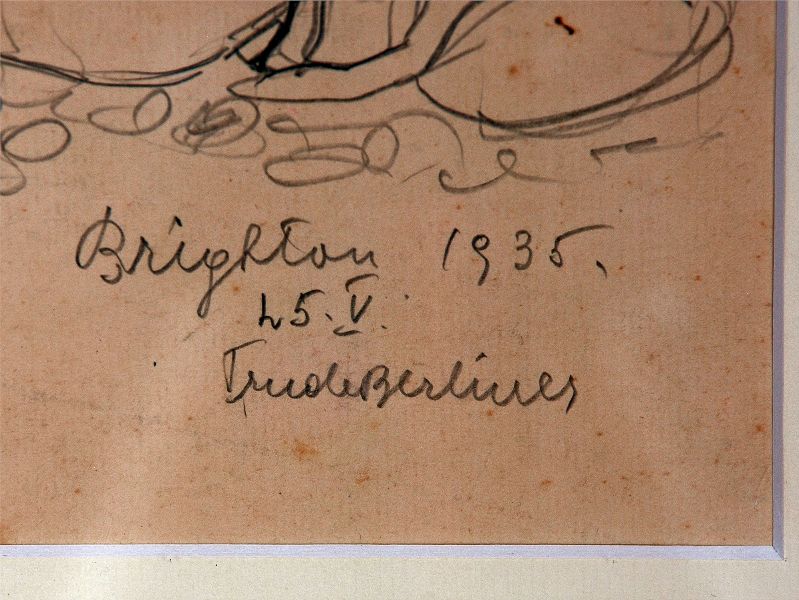 Brighton 1935.
25. V.
Trude Berliner